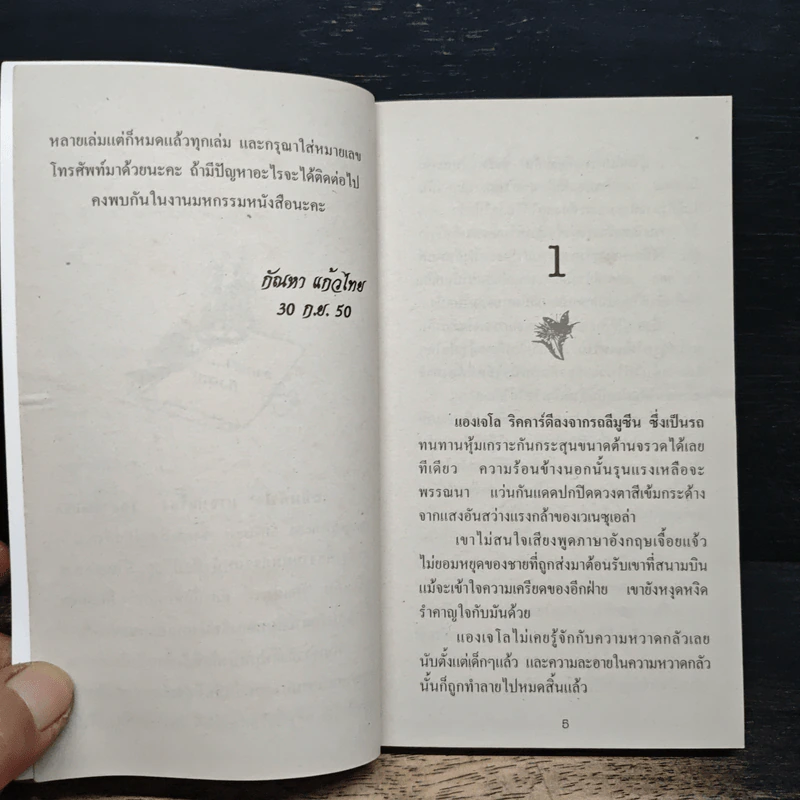 หลายเล่มแต่ก็หมดแล้วทุกเล่ม และกรุณาใส่หมายเลข
โทรศัพท์มาด้วยนะคะ ถ้ามีปัญหาอะไรจะได้ติดต่อไป
คงพบกันในงานมหกรรมหนังสือนะคะ
กัณหา แก้วไทย
30 ก.ย. 50
1
แองเจโล ริคคาร์ดีลงจากรถลีมูซีน ซึ่งเป็นรถ
ทนทานหุ้มเกราะกันกระสุนขนาดต้านจรวดได้เลย
ทีเดียว ความร้อนข้างนอกนั้นรุนแรงเหลือจะ
พรรณนา แว่นกันแดดปกปิดดวงตาสีเข้มกระด้าง
จากแสงอันสว่างแรงกล้าของเวเนซุเอล่า
เขาไม่สนใจเสียงพูดภาษาอังกฤษเจื้อยแจ้ว
ไม่ยอมหยุดของชายที่ถูกส่งมาต้อนรับเขาที่สนามบิน
แม้จะเข้าใจความเครียดของอีกฝ่าย เขายังหงุดหงิด
รำคาญใจกับมันด้วย
แองเจโลไม่เคยรู้จักกับความหวาดกลัวเลย
นับตั้งแต่เด็กๆแล้ว และความละอายในความหวาดกลัว
นั้นก็ถูกทำลายไปหมดสิ้นแล้ว
5